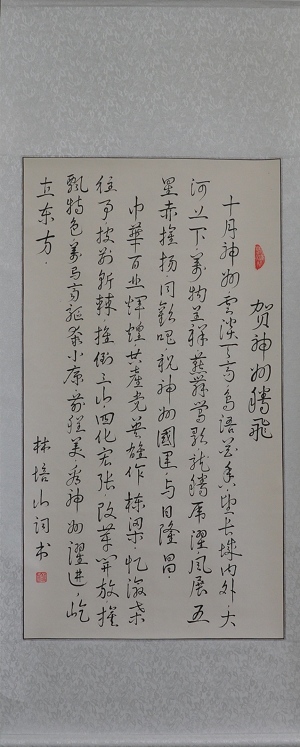 贺神州腾飞
十月神州，云淡天高，鸟语花香，望长城内外，大
河上下，万物呈祥，燕舞莺歌，龙腾虎跃，风展五
星赤旗扬，同欢唱，祝神州国运与日隆昌。
中华百业辉煌，共产党英雄作栋梁，忆激荣
往事，披荆斩棘，推倒三山，四化宏张，改革开放，旗
飘特色，万马高驱奔小康，前程美，看神州跃进，屹
立东方。
林培山词书